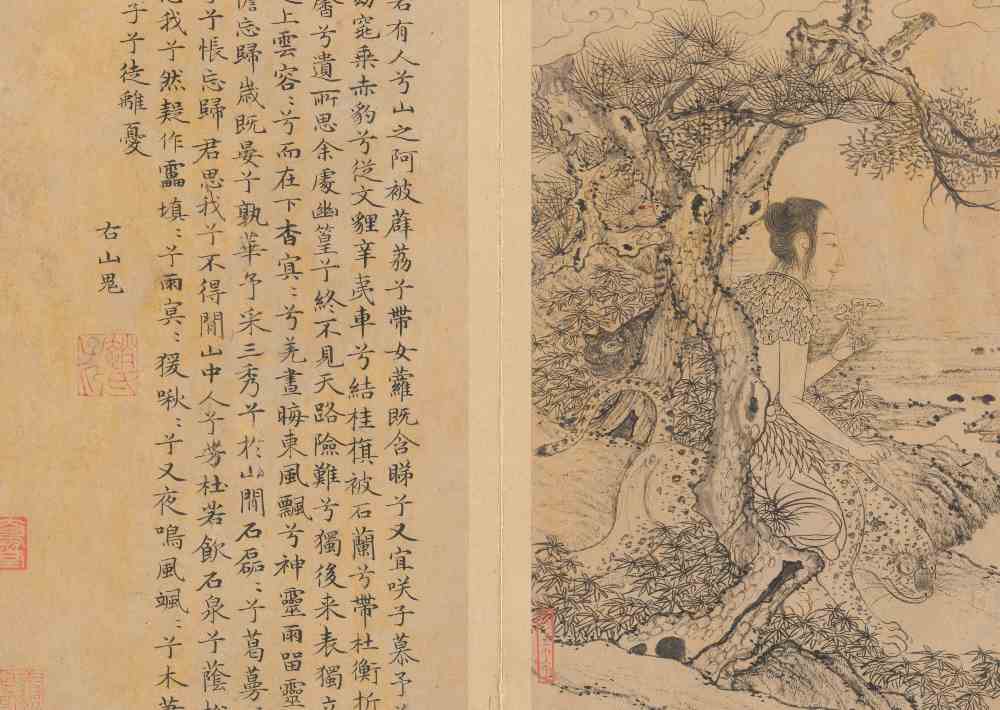 若有人兮山之阿被薜荔兮帶女蘿既含睇兮又宜咲子慕予兮
窕乘赤豹兮從文貍辛夷車兮結桂旗被石蘭兮帶杜衡折
馨兮遺所思余處幽篁兮終不見天路險難兮獨後来表獨立
之上雲容〻兮而在下杳冥〻兮羌晝晦東風飄兮神靈雨留靈
憺忘歸歲既晏兮孰華予采三秀兮於山間石磊〻兮葛蔓〻
子兮悵忘歸君思我兮不得閒山中人兮芳杜若飲石泉兮蔭松
思我兮然疑作靁填〻兮雨冥〻猨啾〻兮又夜鳴風颯〻兮木蕭
子兮徒離憂
右山鬼
趙氏子昂